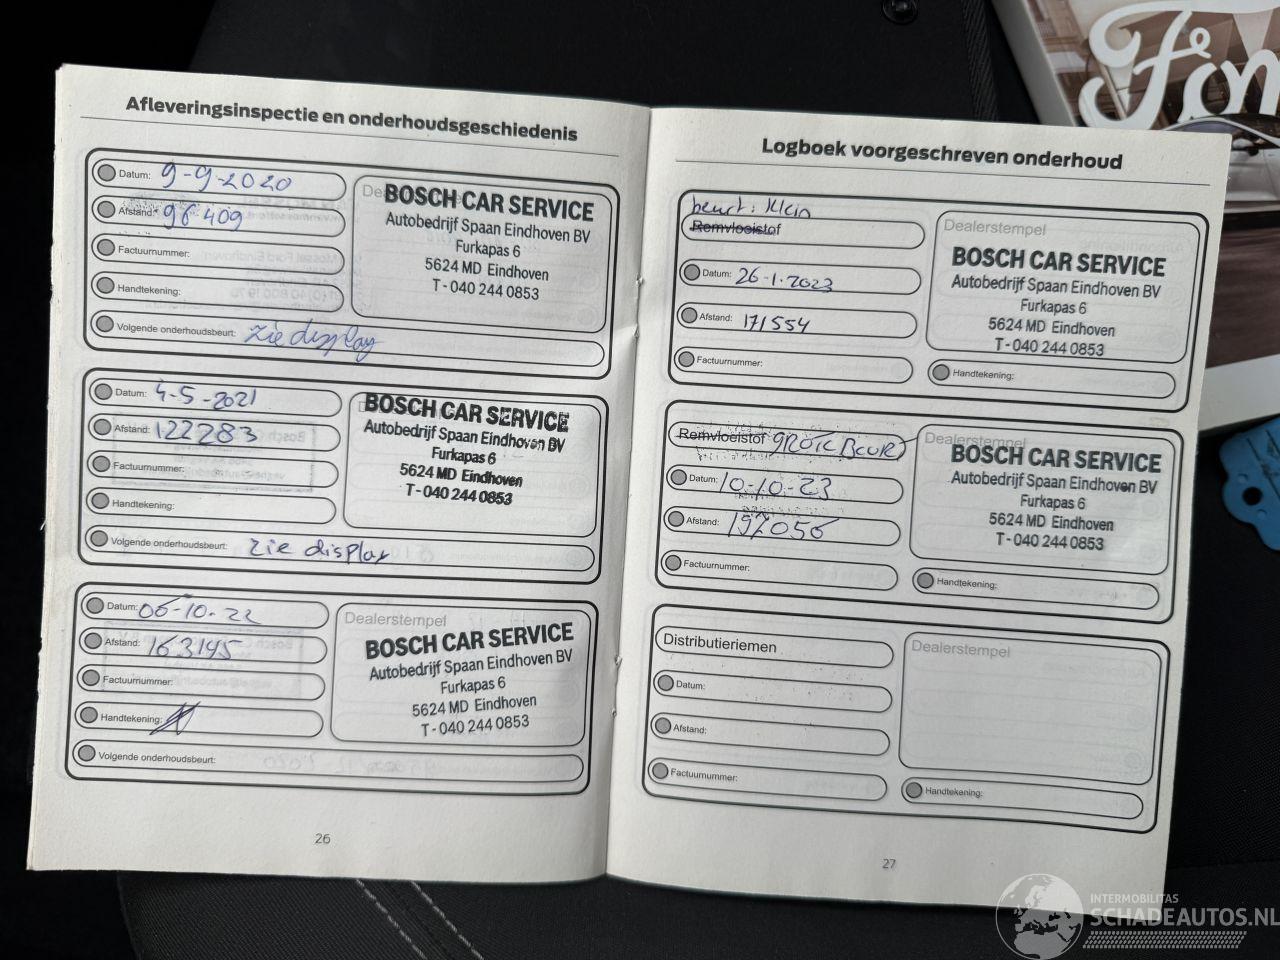 Afleveringsinspectie en onderhoudsgeschiedenis
Datum: 9-9-2020
Afstand: 96 409
Factuurnummer:
Handtekening:
Volgende onderhoudsbeurt: zie display
BOSCH CAR SERVICE
Autobedrijf Spaan Eindhoven BV
Furkapas 6
5624 MD Eindhoven
T - 040 244 0853
Datum: 4-5-2021
Afstand: 122283
Factuurnummer:
Handtekening:
Volgende onderhoudsbeurt: zie display
BOSCH CAR SERVICE
Autobedrijf Spaan Eindhoven BV
Furkapas 6
5624 MD Eindhoven
T - 040 244 0853
Datum: 06-10-22
Afstand: 163145
Factuurnummer:
Handtekening:
Volgende onderhoudsbeurt:
Dealerstempel
BOSCH CAR SERVICE
Autobedrijf Spaan Eindhoven BV
Furkapas 6
5624 MD Eindhoven
T - 040 244 0853
26
Logboek voorgeschreven onderhoud
beurt: klein
Remvloeistof
Datum: 26-1-2023
Afstand: 171554
Factuurnummer:
Dealerstempel
BOSCH CAR SERVICE
Autobedrijf Spaan Eindhoven BV
Furkapas 6
5624 MD Eindhoven
T - 040 244 0853
Handtekening:
Remvloeistof GROTE BEURT
Datum: 10-10-23
Afstand: 197056
Factuurnummer:
Dealerstempel
BOSCH CAR SERVICE
Autobedrijf Spaan Eindhoven BV
Furkapas 6
5624 MD Eindhoven
T - 040 244 0853
Handtekening:
Distributieriemen
Datum:
Afstand:
Factuurnummer:
Dealerstempel
Handtekening:
27
INTERMOBILITAS
SCHADEAUTOS.NL